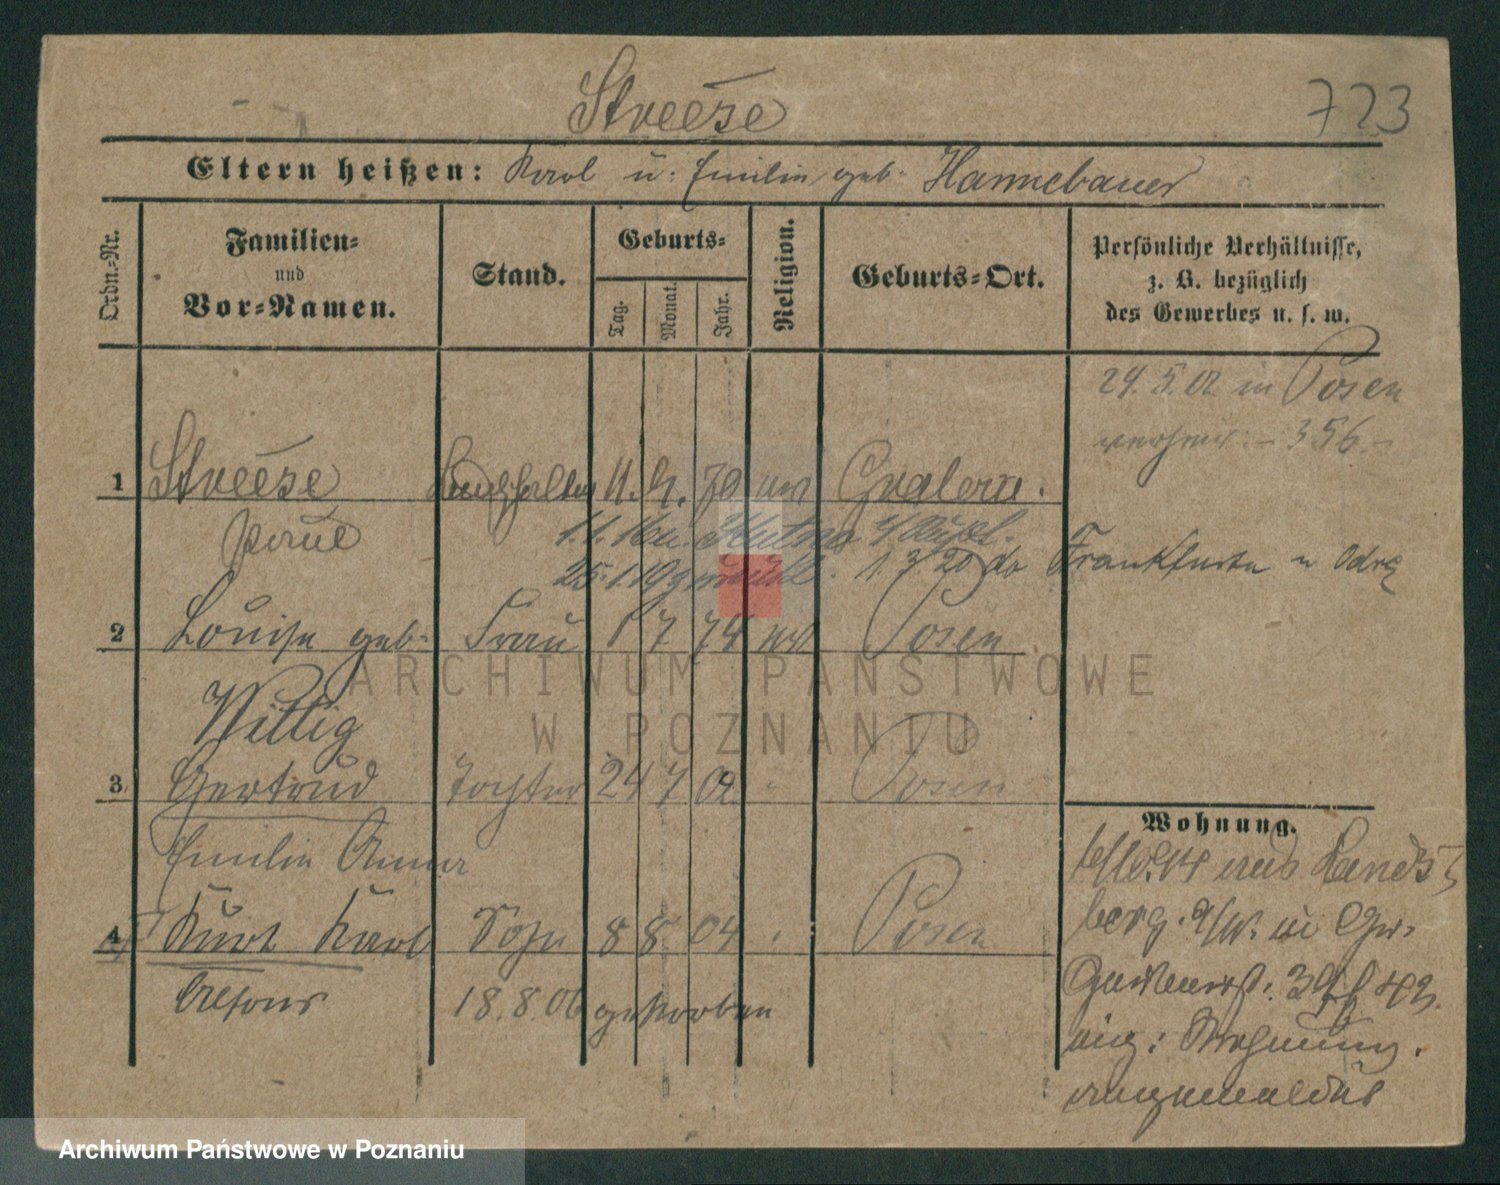 Streese
723
Eltern heißen: Karl u. Emilie geb. Hannebauer
Ordn.-Nr.
Familien-
und
Vor-Namen.
Stand.
Geburts-
Tag.
Monat.
Jahr.
Religion.
Geburts-Ort.
Persönliche Verhältnisse,
z. B. bezüglich
des Gewerbes u. s. w.
24. 5. 02 in Posen
356
1 Streese Buchhalter 11. 4. 70
Paul
1. 1. 16 u. Kutno
25. 1. 19 1. 3 20 do Frankfurt a Oder
2 Louise geb. Frau 1 7 74 Posen
Wittig
3 Gertrud Tochter 24 7 02 Posen
Emilie Anna
4 Kurt Karl Sohn 8 8 04 Posen
Alfons 18. 8. 06 gestorben
Wohnung.
aus Lands
berg. in Gr.
Wohnung.
angemeldet
ARCHIWUM PAŃSTWOWE
W POZNANIU
Archiwum Państwowe w Poznaniu